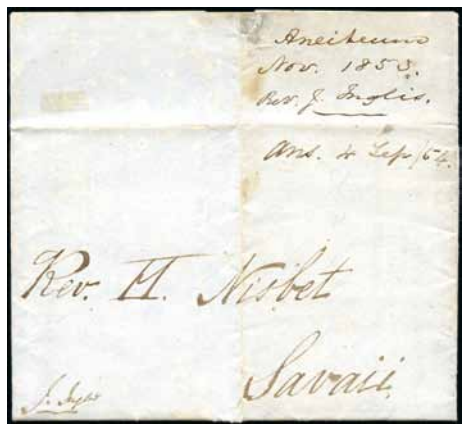 Aneiteum
Nov. 1853.
Rev. J. Inglis.
Ans. 4 Sep/54.
Rev. H. Nisbet
Savaii.
J. Inglis